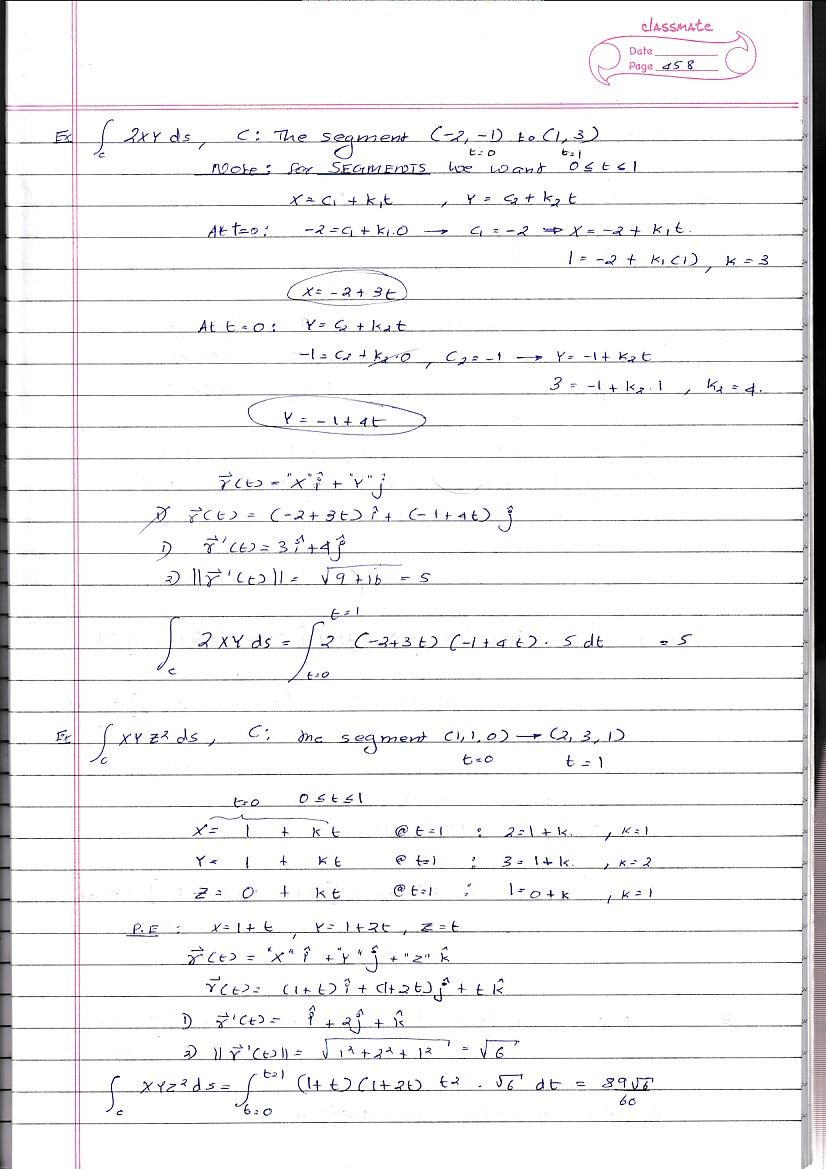 classmate
Date
Page 458
Ex ∫c 2XY ds, C: The segment (-2, -1) to (1, 3)
t=0 t=1
Note: for SEGMENTS we want 0 ≤ t ≤ 1
X = C₁ + k₁t , Y = C₂ + k₂t
At t=0: -2 = C₁ + k₁.0 → C₁ = -2 ⇒ X = -2 + k₁t.
1 = -2 + k₁(1), k = 3
X = -2 + 3t
At t=0: Y = C₂ + k₂t
-1 = C₂ + k₂.0 , C₂ = -1 → Y = -1 + k₂t
3 = -1 + k₂.1 , k₂ = 4.
Y = -1 + 4t
r⃗(t) = "X" î + "Y" ĵ
1) r⃗(t) = (-2+3t) î + (-1+4t) ĵ
1) r⃗'(t) = 3î + 4ĵ
2) ||r⃗'(t)|| = √(9+16) = 5
∫c 2XY ds = ∫t=0^t=1 2 (-2+3t) (-1+4t) . 5 dt = 5
Ex ∫c XYZ² ds, C: the segment (1,1,0) → (2,3,1)
t=0 t=1
t=0 0 ≤ t ≤ 1
X = 1 + kt @ t=1 : 2 = 1 + k. , k=1
Y = 1 + kt @ t=1 : 3 = 1 + k. , k=2
Z = 0 + kt @ t=1. : 1 = 0 + k , k=1
P.E : X = 1 + t , Y = 1 + 2t , Z = t
r⃗(t) = "X" î + "Y" ĵ + "Z" k̂
r⃗(t) = (1+t) î + (1+2t) ĵ + t k̂
1) r⃗'(t) = î + 2ĵ + k̂
2) ||r⃗'(t)|| = √(1² + 2² + 1²) = √6
∫c XYZ² ds = ∫t=0^t=1 (1+t) (1+2t) t² . √6 dt = 89√6/60